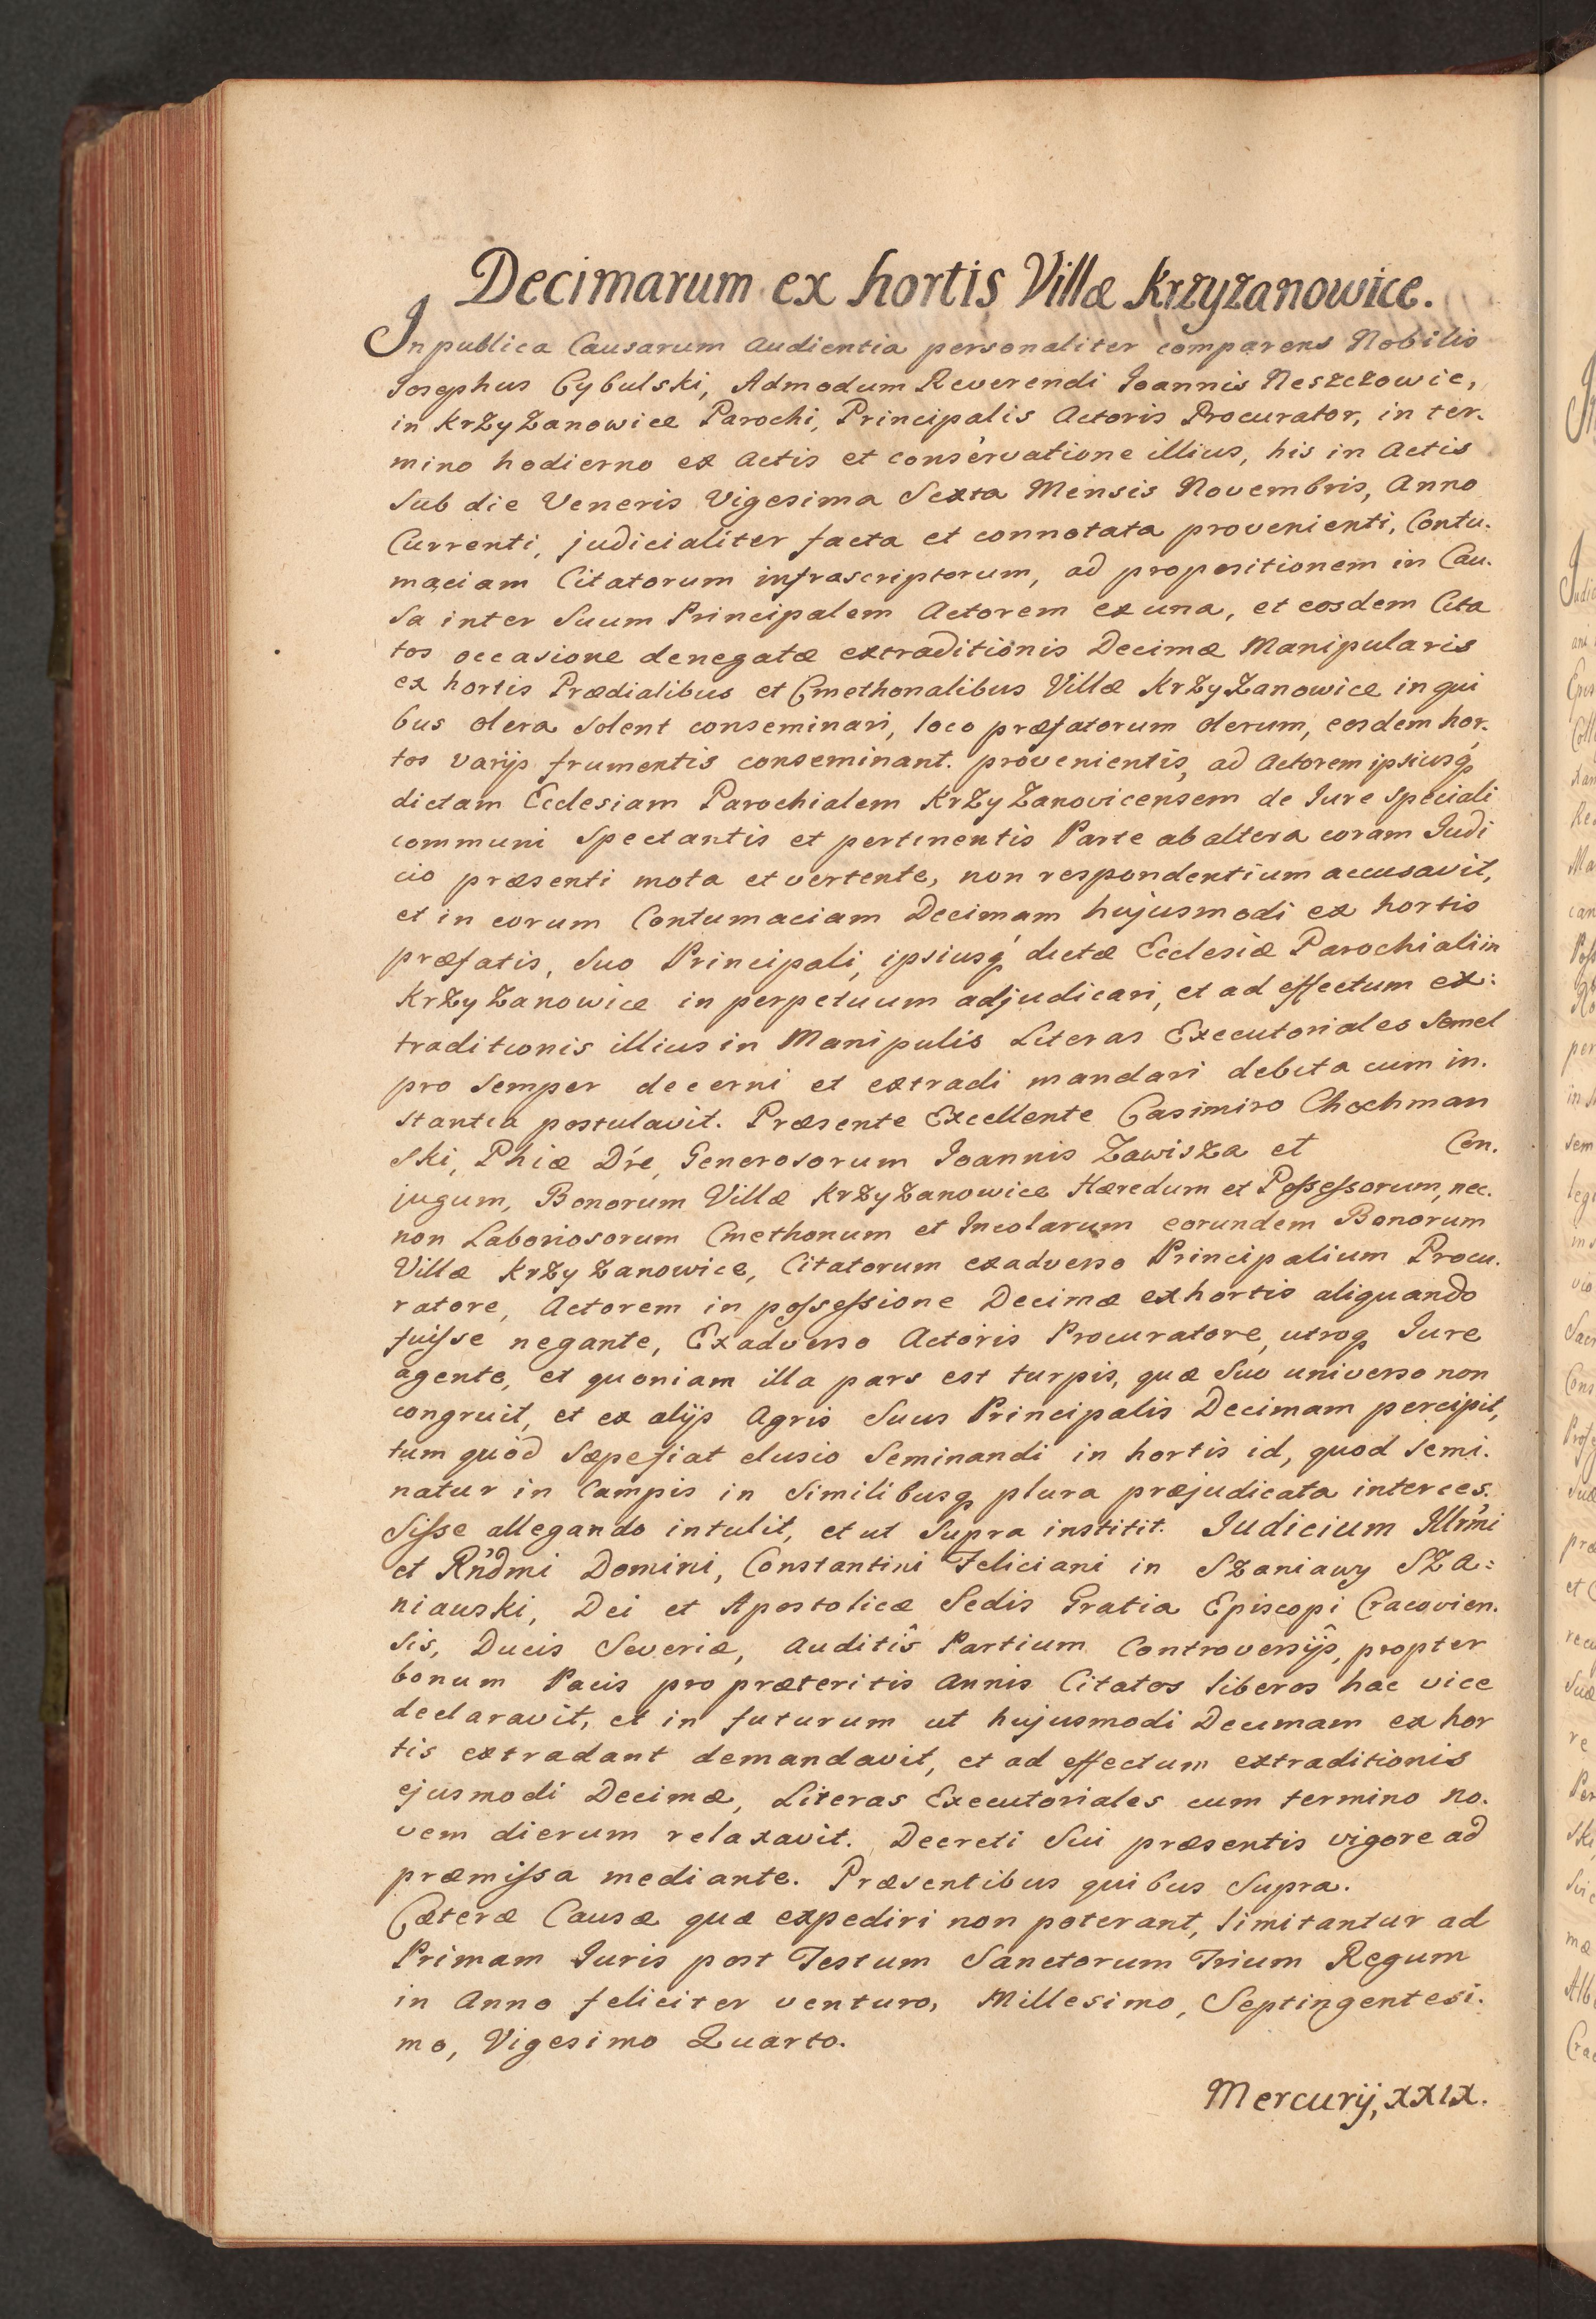 Decimarum ex hortis Villæ Krzyzanowice.
In publica Causarum Audientia personaliter comparens Nobilis
Josephus Cybulski, Admodum Reverendi Joannis Neszczowic,
in KrzyZanowice Parochi, Principalis Actoris Procurator, in ter-
mino hodierno ex Actis et conservatione illius, his in Actis
Sub die Veneris Vigesima Sexta Mensis Novembris, Anno
Currenti, judicialiter facta et connotata provenienti, Contu-
maciam Citatorum infrascriptorum, ad propositionem in Cau-
sa inter Suum Principalem Actorem ex una, et eosdem Cita
tos occasione denegatæ extraditionis Decimæ Manipularis
ex hortis Prædialibus et Cmethonalibus Villæ KrzyZanowice in qui
bus olera solent conseminari, loco præfatorum olerum, eosdem hor-
tos varijs frumentis conseminant. provenientis, ad Actorem ipsiusq
dictam Ecclesiam Parochialem KrzyZanovicensem de Iure speciali
communi Spectantis et pertinentis Parte ab altera coram Iudi
cio præsenti mota et vertente, non respondentium accusavit,
et in eorum Contumaciam Decimam hujusmodi ex hortis
præfatis, Suo Principali, ipsiusq dictæ Ecclesiæ Parochiali in
KrzyZanowice in perpetuum adjudicari, et ad effectum ex:
traditionis illius in Manipulis Literas Executoriales Semel
pro Semper decerni et extradi mandari debita cum in-
stantia postulavit. Præsente Excellente Casimiro Chochman
ski, Phiæ Dre, Generosorum Joannis Zawisza et Con-
jugum, Bonorum Villæ KrzyZanowice Hæredum et Possessorum, nec-
non Laboriosorum Cmethonum et Incolarum eorundem Bonorum
Villæ KrzyZanowice, Citatorum exadverso Principalium Procu-
ratore, Actorem in possessione Decimæ ex hortis aliquando
fuisse negante, Exadverso Actoris Procuratore, utroq Iure
agente, et quoniam illa pars est turpis, quæ Suo universo non
congruit, et ex alijs Agris Suus Principalis Decimam percipit,
tum quòd Sæpe fiat elusio Seminandi in hortis id, quod semi-
natur in Campis in Similibusq plura præjudicata interces-
sisse allegando intulit, et ut Supra institit. Iudicium Illrmi
et Rndmi Domini, Constantini Feliciani in Szaniawy SZA:
niauski, Dei et Apostolicæ Sedis Gratia Episcopi Cracovien-
sis, Ducis Severiæ, Auditis Partium Controversijs, propter
bonum Pacis pro præteritis Annis Citatos liberos hac vice
declaravit, et in futurum ut hujusmodi Decimam ex hor
tis extradant demandavit, et ad effectum extraditionis
ejusmodi Decimæ, Literas Executoriales cum termino no-
vem dierum relaxavit. Decreti Sui præsentis vigore ad
præmissa mediante. Præsentibus quibus Supra.
Cæteræ Causæ quæ expediri non poterant, limitantur ad
Primam Iuris post Festum Sanctorum Trium Regum
in Anno feliciter venturo, Millesimo, Septingentesi-
mo, Vigesimo Quarto.
Mercurij, XXIX.